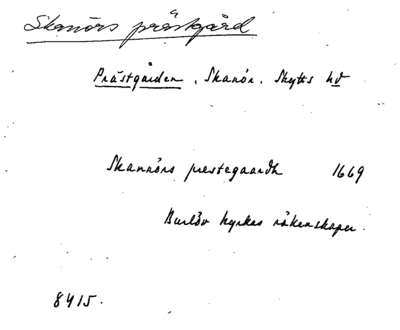 Skanörs prästgård
Prästgården. Skanör. Skytts hd
Skannörs prestegaardh 1669
Burlöv kyrkas räkenskaper.
8415.